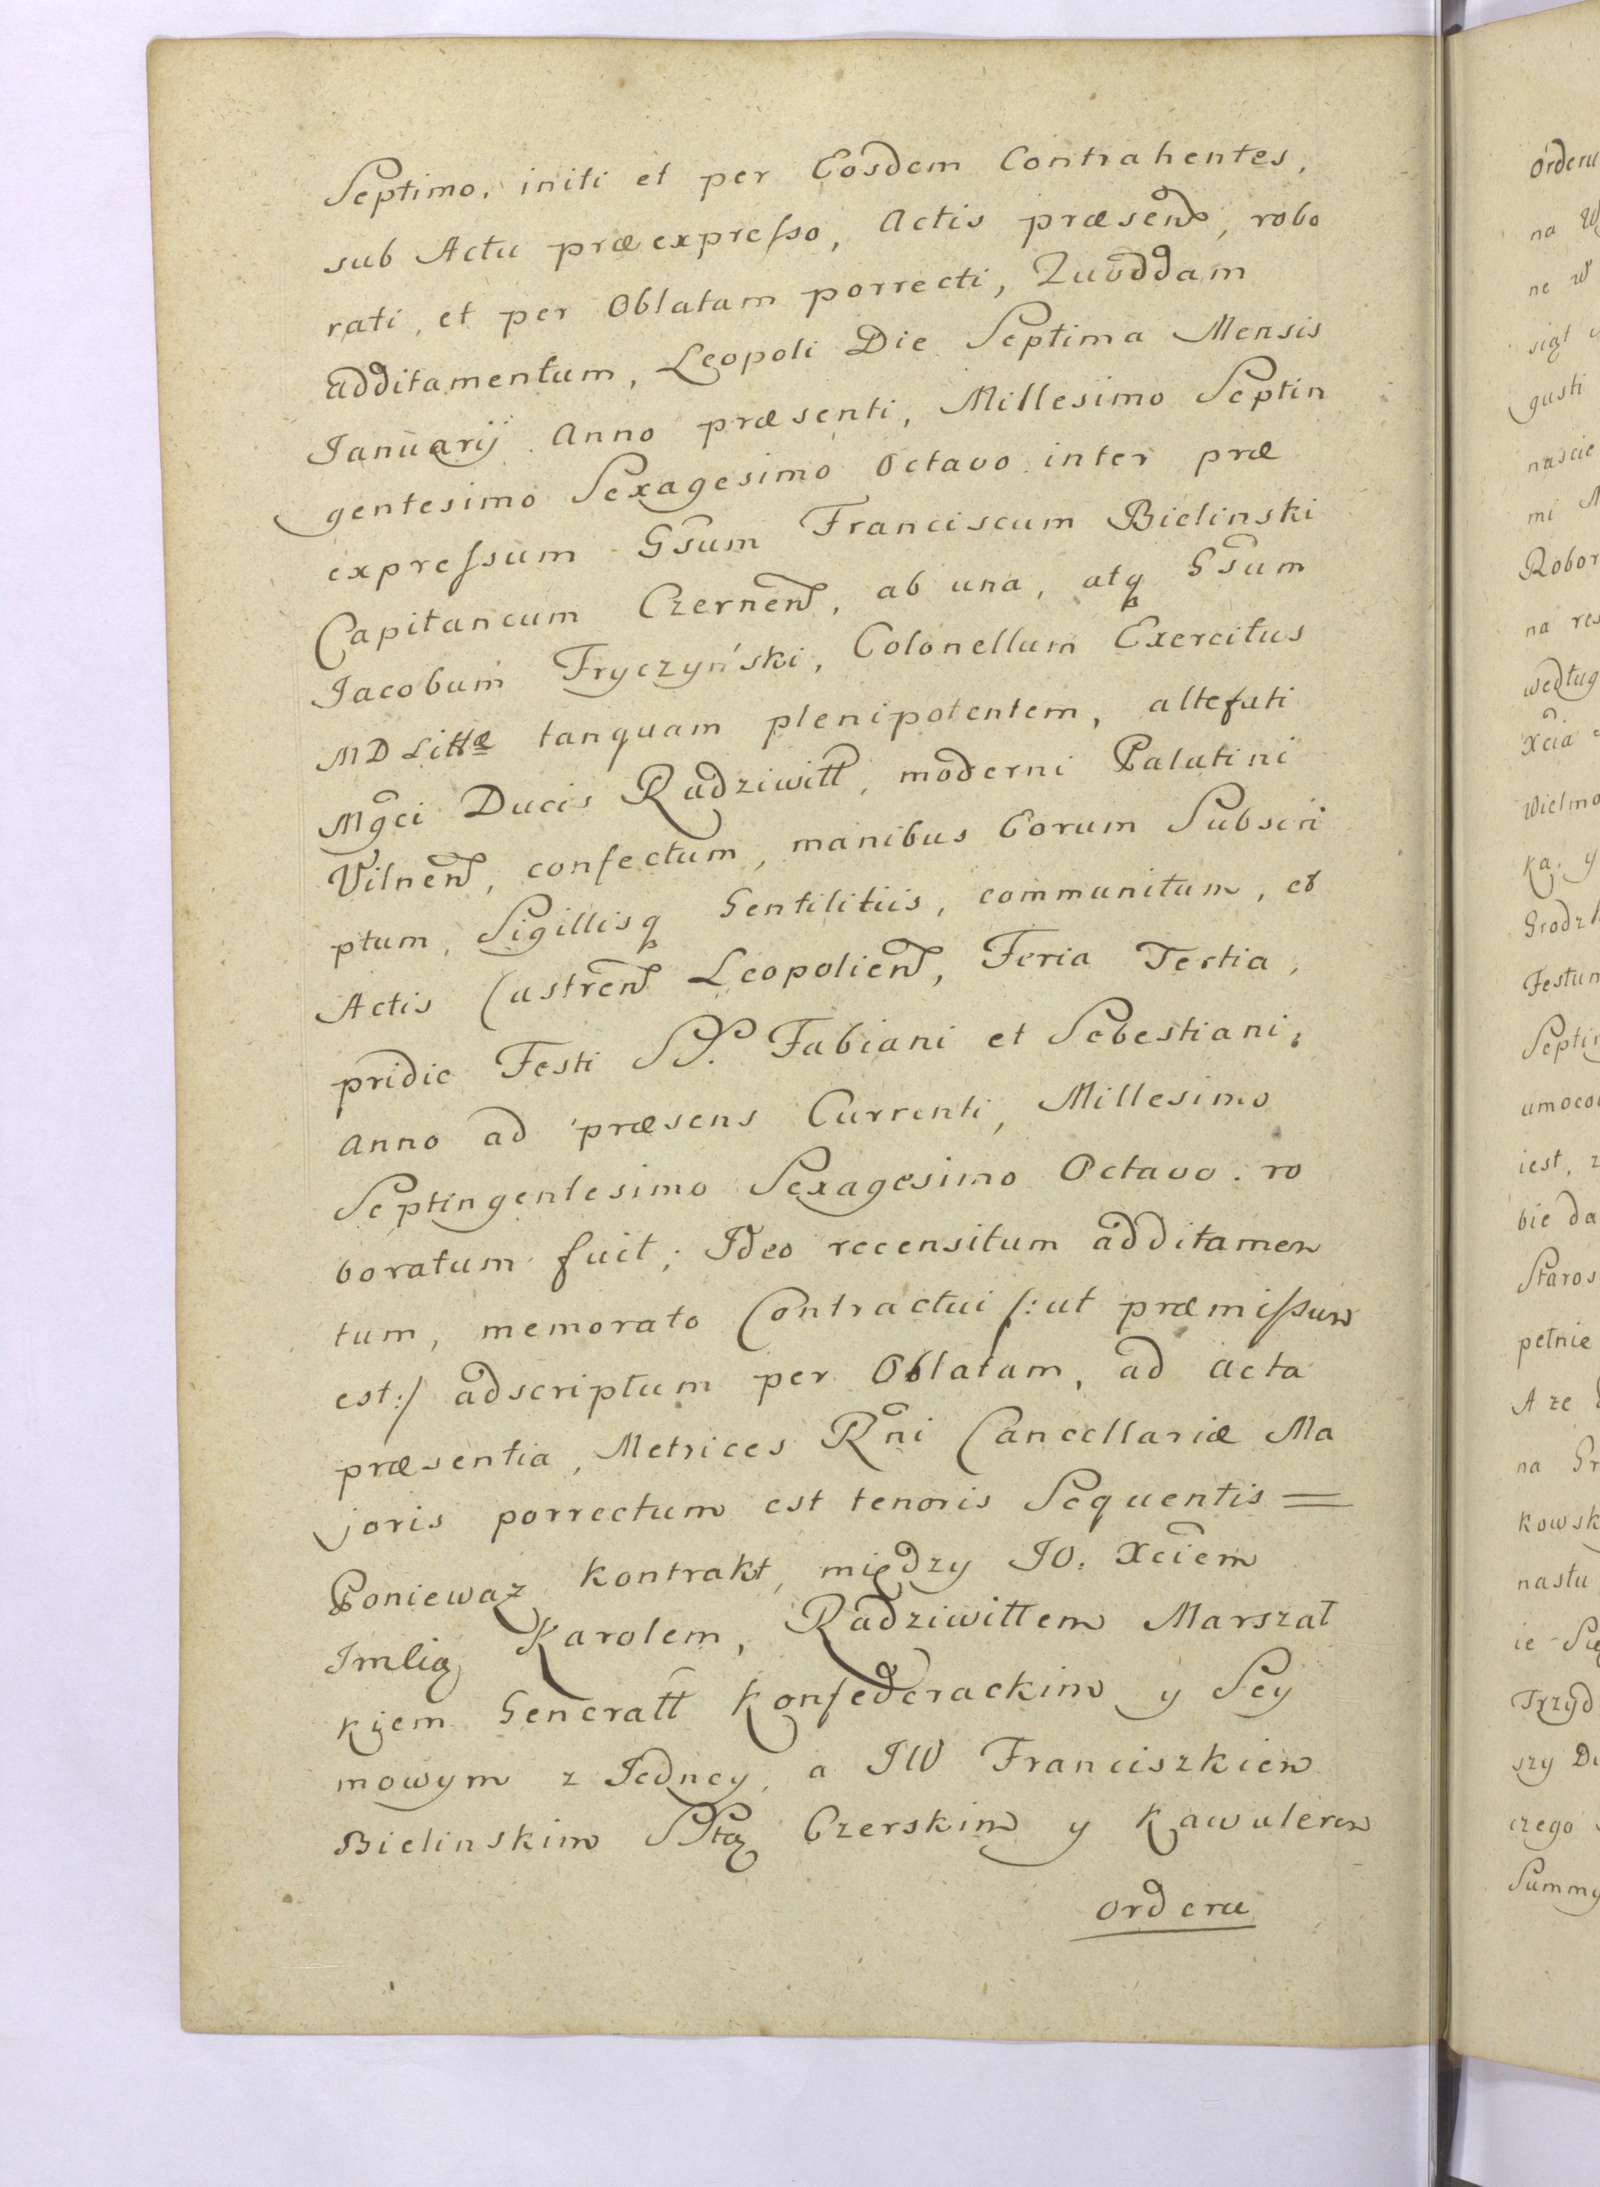 Septimo, initi et per Eosdem Contrahentes,
sub Actu præexpresso, Actis præsen, robo
rati, et per Oblatam porrecti, Quoddam
additamentum, Leopoli Die Septima Mensis
Januarij Anno præsenti, Millesimo Septin
gentesimo Sexagesimo Octavo inter præ
expressum Gsum Franciscum Bielinski
Capitaneum Czernen, ab una, atq Gsum
Jacobum Fryczyński, Colonellum Exercitus
MD Littæ tanquam plenipotentem, altefati
Mgci Ducis Radziwiłł, moderni Palatini
Vilnen, confectum, manibus Eorum Subscri
ptum, Sigillisq Gentilitiis, communitum, et
Actis Castren Leopolien, Feria Tertia,
pridie Festi SS. Fabiani et Sebestiani,
Anno ad præsens Currenti, Millesimo
Septingentesimo Sexagesimo Octavo. ro
boratum fuit; Ideo recensitum additamen
tum, memorato Contractui /:ut præmissum
est:/ adscriptum per Oblatam, ad acta
præsentia, Metrices Rni Cancellariæ Ma
joris porrectum est tenoris Sequentis =
Poniewaz kontrakt, między JO. Xciem
Imlią Karolem, Radziwiłłem Marszał
kiem Generałł konfederackim y Sey
mowym z Jedney, a JW Franciszkiem
Bielinskim SSta Czerskim y kawalerem
orderu
orderu
na
ne w
sigt
gusti
nascie
mi
Robor
na res
według
Xcia
Wielmo
ką, y
Grodz
Festum
Septin
umoco
iest, z
bie da
Staros
pełnie
A ze
na Gr
kowsk
nastu
ie
Trzyd
szy Du
czego
Summy